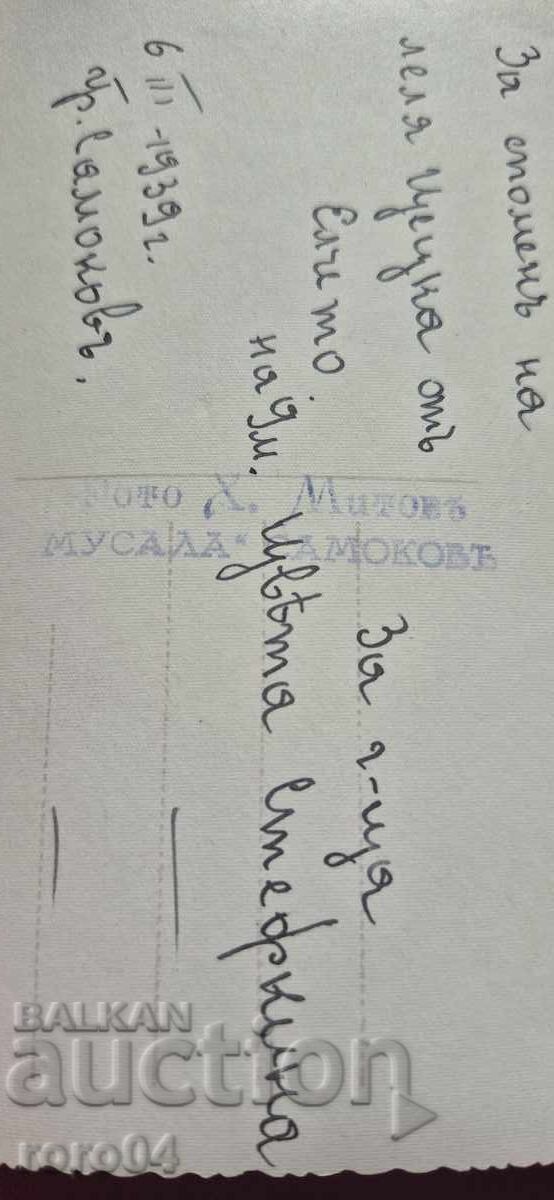 За споменъ на
леля Цецка отъ
Елчето
6 III -1939 г.
гр. Самоковъ.
Фото Х. Митовъ
МУСАЛА" САМОКОВЪ
За г-ца
Цвѣта Стефкина
BALKAN
auction
roro04